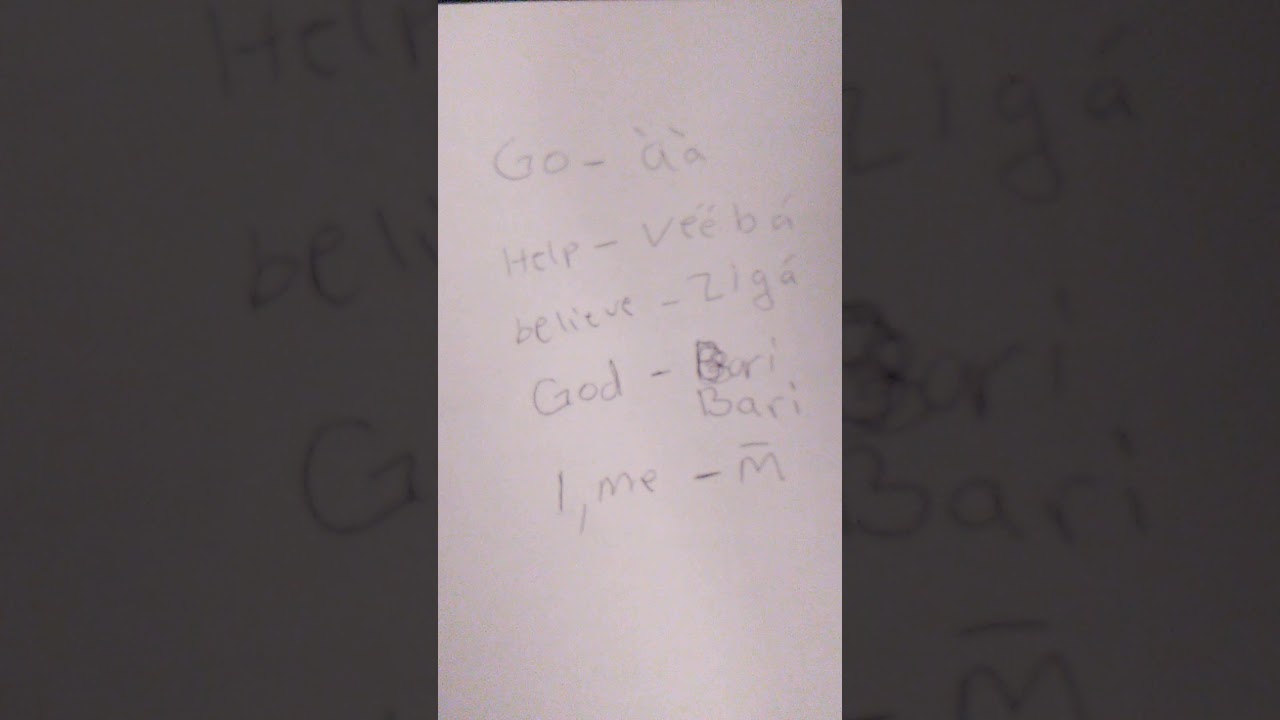 Go - àà
Help - Vëëbá
believe - zigá
God - Bari
Bari
I, me - m̄